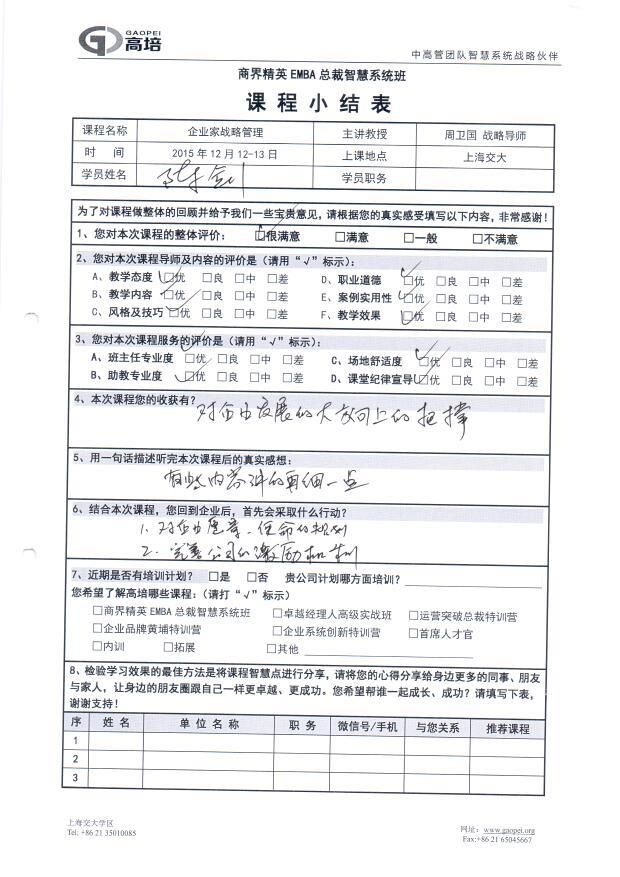 GAOPEI
高培
中高管团队智慧系统战略伙伴
商界精英EMBA总裁智慧系统班
课程小结表
课程名称 企业家战略管理 主讲教授 周卫国 战略导师
时 间 2015年12月12-13日 上课地点 上海交大
学员姓名 陈剑 学员职务
为了对课程做整体的回顾并给予我们一些宝贵意见,请根据您的真实感受填写以下内容,非常感谢!
1、您对本次课程的整体评价: ☑很满意 □满意 □一般 □不满意
2、您对本次课程导师及内容的评价是(请用“√”标示):
A、教学态度 ☑优 □良 □中 □差 D、职业道德 ☑优 □良 □中 □差
B、教学内容 ☑优 □良 □中 □差 E、案例实用性 ☑优 □良 □中 □差
C、风格及技巧 ☑优 □良 □中 □差 F、教学效果 ☑优 □良 □中 □差
3、您对本次课程服务的评价是(请用“√”标示):
A、班主任专业度 ☑优 □良 □中 □差 C、场地舒适度 ☑优 □良 □中 □差
B、助教专业度 ☑优 □良 □中 □差 D、课堂纪律宣导 ☑优 □良 □中 □差
4、本次课程您的收获有?
对企业发展的大方向上的把握
5、用一句话描述听完本次课程后的真实感想:
有些内容讲的再细一点
6、结合本次课程,您回到企业后,首先会采取什么行动?
1、对企业愿景、使命的规划
2、完善公司的激励机制
7、近期是否有培训计划? □是 □否 贵公司计划哪方面培训?
您希望了解高培哪些课程:(请打“√”标示)
□商界精英EMBA总裁智慧系统班 □卓越经理人高级实战班 □运营突破总裁特训营
□企业品牌黄埔特训营 □企业系统创新特训营 □首席人才官
□内训 □拓展 □其他
8、检验学习效果的最佳方法是将课程智慧点进行分享,请将您的心得分享给身边更多的同事、朋友
与家人,让身边的朋友圈跟自己一样更卓越、更成功。您希望帮谁一起成长、成功?请填写下表,
谢谢支持!
序 姓 名 单 位 名 称 职 务 微信号/手机 与您关系 推荐课程
1
2
3
上海交大学区 网址:www.gaopei.org
Tel: +86 21 35010085 Fax:+86 21 65045667